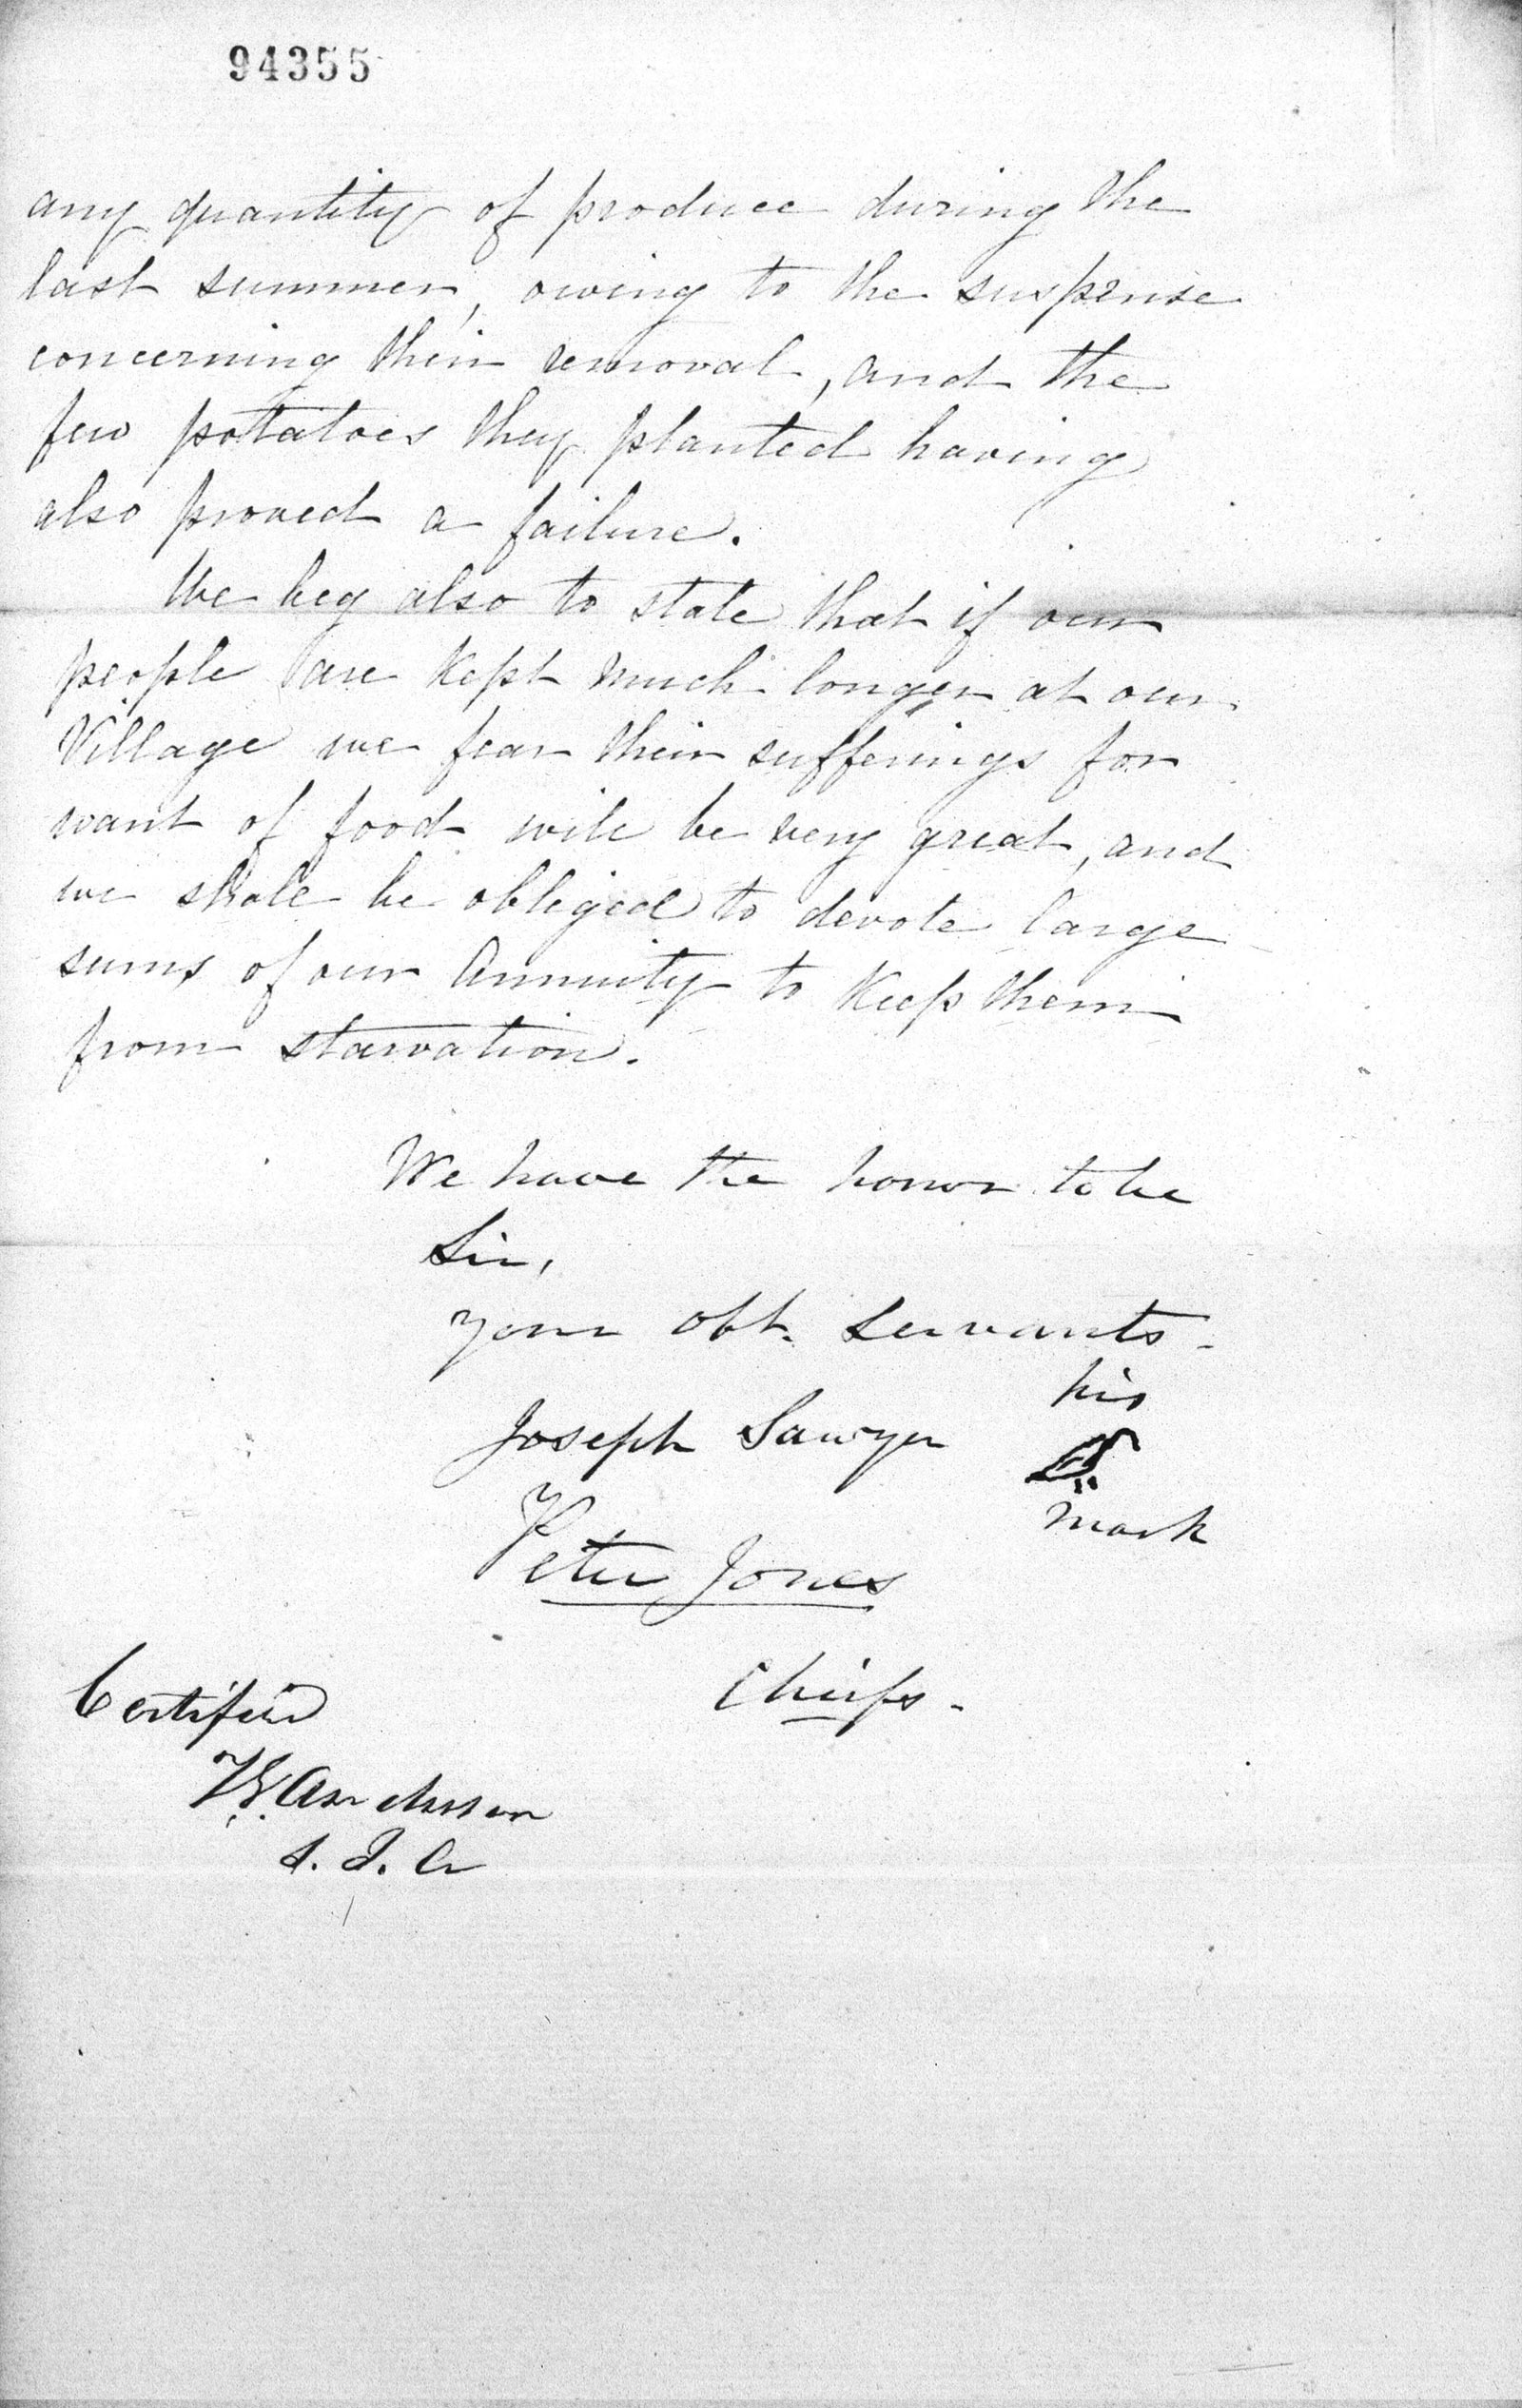 94355
any quantity of produce during the
last summer, owing to the suspense
concerning their removal, and the
few potatoes they planted having
also proved a failure.
We beg also to state that if our
people are kept much longer at our
Village we fear their sufferings for
want of food will be very great, and
we shall be obliged to devote large
sums of our Annuity to keep them
from starvation.
We have the honor to be
Sir,
your obt. servants
his
Joseph Sawyer
mark
Peter Jones
Chiefs.
Certified
Anderson
S. I. A